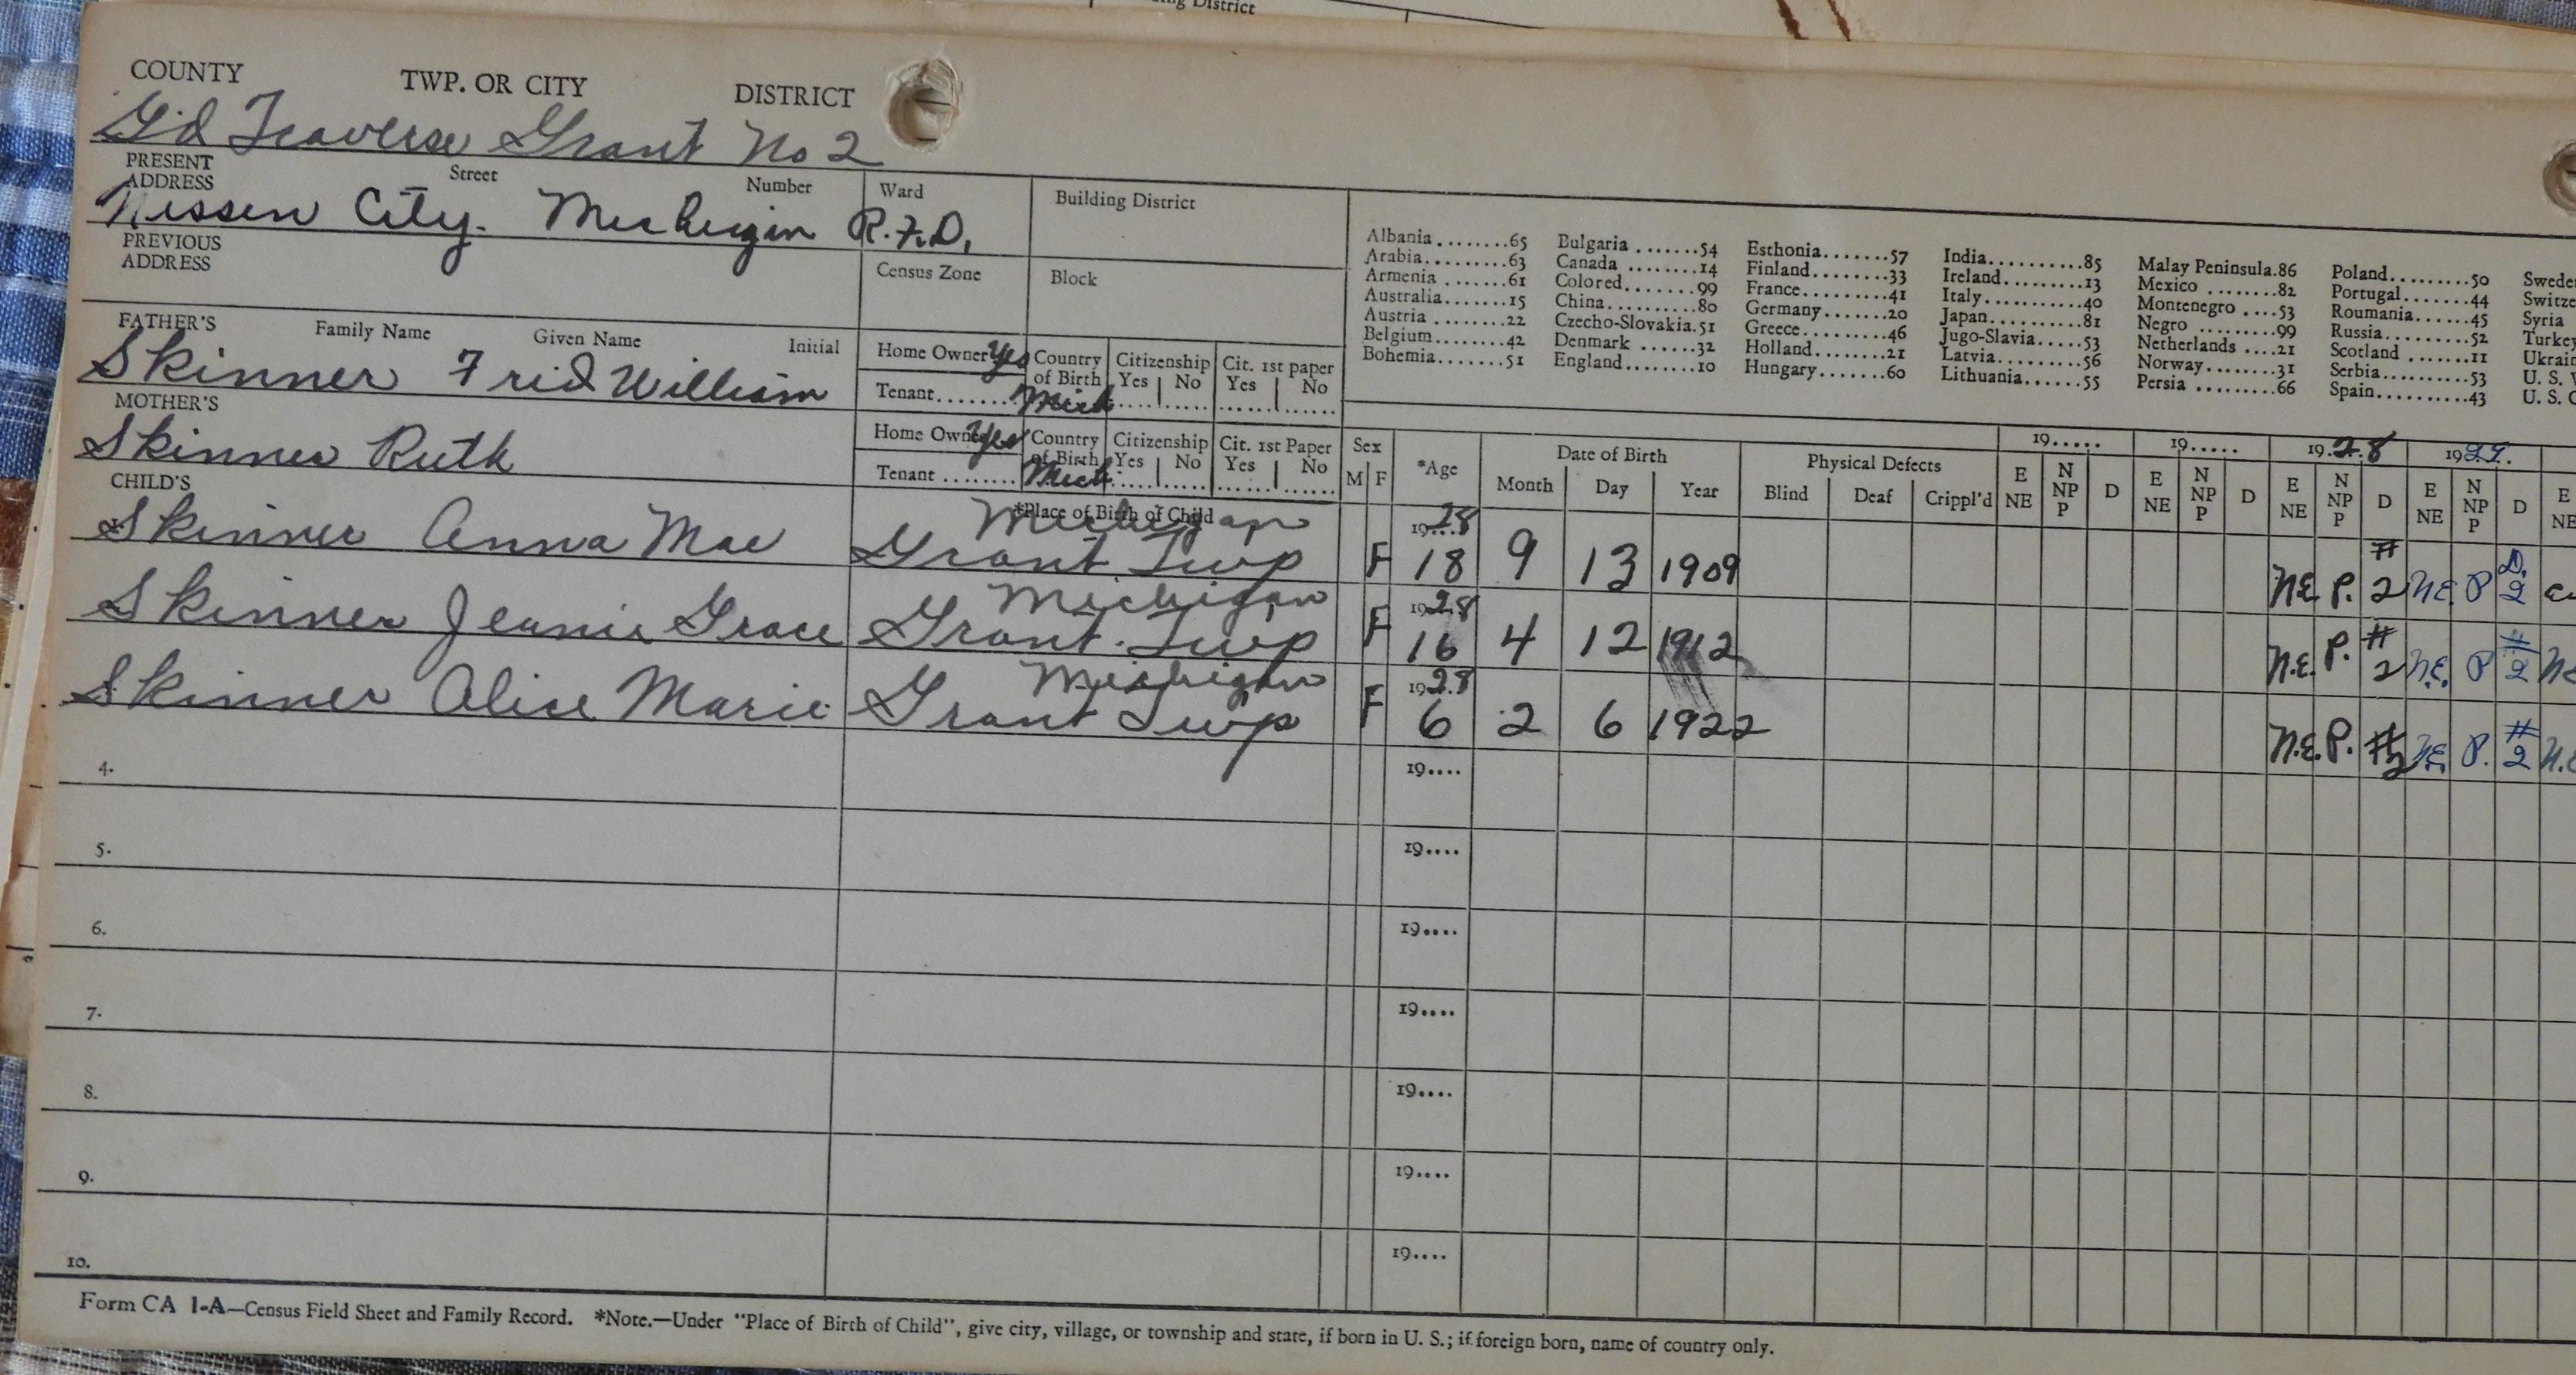 ng District
COUNTY TWP. OR CITY DISTRICT
Gd Traverse Grant No 2
PRESENT ADDRESS Street Number Ward Building District
Nessen City. Michigin R.F.D.
PREVIOUS ADDRESS Census Zone Block
Albania........65 Bulgaria.......54 Esthonia.......57 India..........85 Malay Peninsula.86 Poland.........50 Swede
Arabia.........63 Canada ........14 Finland........33 Ireland........13 Mexico ........82 Portugal.......44 Switze
Armenia .......61 Colored........99 France.........41 Italy..........40 Montenegro ....53 Roumania......45 Syria
Australia......15 China..........80 Germany.......20 Japan..........81 Negro .........99 Russia.........52 Turkey
Austria .......22 Czecho-Slovakia.51 Greece.........46 Jugo-Slavia.....53 Netherlands ....21 Scotland .......11 Ukrain
Belgium........42 Denmark ......32 Holland........21 Latvia..........56 Norway.........31 Serbia.........53 U. S.
Bohemia........51 England........10 Hungary.......60 Lithuania......55 Persia .........66 Spain..........43 U. S. C
FATHER'S Family Name Given Name Initial
Skinner Frid William
Home Owner Yes Country of Birth Citizenship Yes No Cit. 1st paper Yes No
Tenant....... Mich
MOTHER'S
Skinner Ruth
Home Owner Yes Country of Birth Citizenship Yes No Cit. 1st Paper Yes No
Tenant ........ Mich
Sex M F *Age Date of Birth Month Day Year Physical Defects Blind Deaf Crippl'd
19..... 19..... 1928 1929.
E NE N NP P D E NE N NP P D E NE N NP P D E NE N NP P D E NE
CHILD'S *Place of Birth of Child
Skinner Anna Mae Michigan Grant Twp F 1928 18 9 13 1909 N.E. P. # 2 N.E. P D. 2
Skinner Jeanie Grace Michigan Grant. Twp F 1928 16 4 12 1912 N.E. P. # 2 N.E. P # 2
Skinner Alice Marie Michigan Grant Twp F 1928 6 2 6 1922 N.E. P. #2 N.E. P. # 2
4. 19....
5. 19....
6. 19....
7. 19....
8. 19....
9. 19....
10. 19....
Form CA 1-A—Census Field Sheet and Family Record. *Note.—Under "Place of Birth of Child", give city, village, or township and state, if born in U. S.; if foreign born, name of country only.